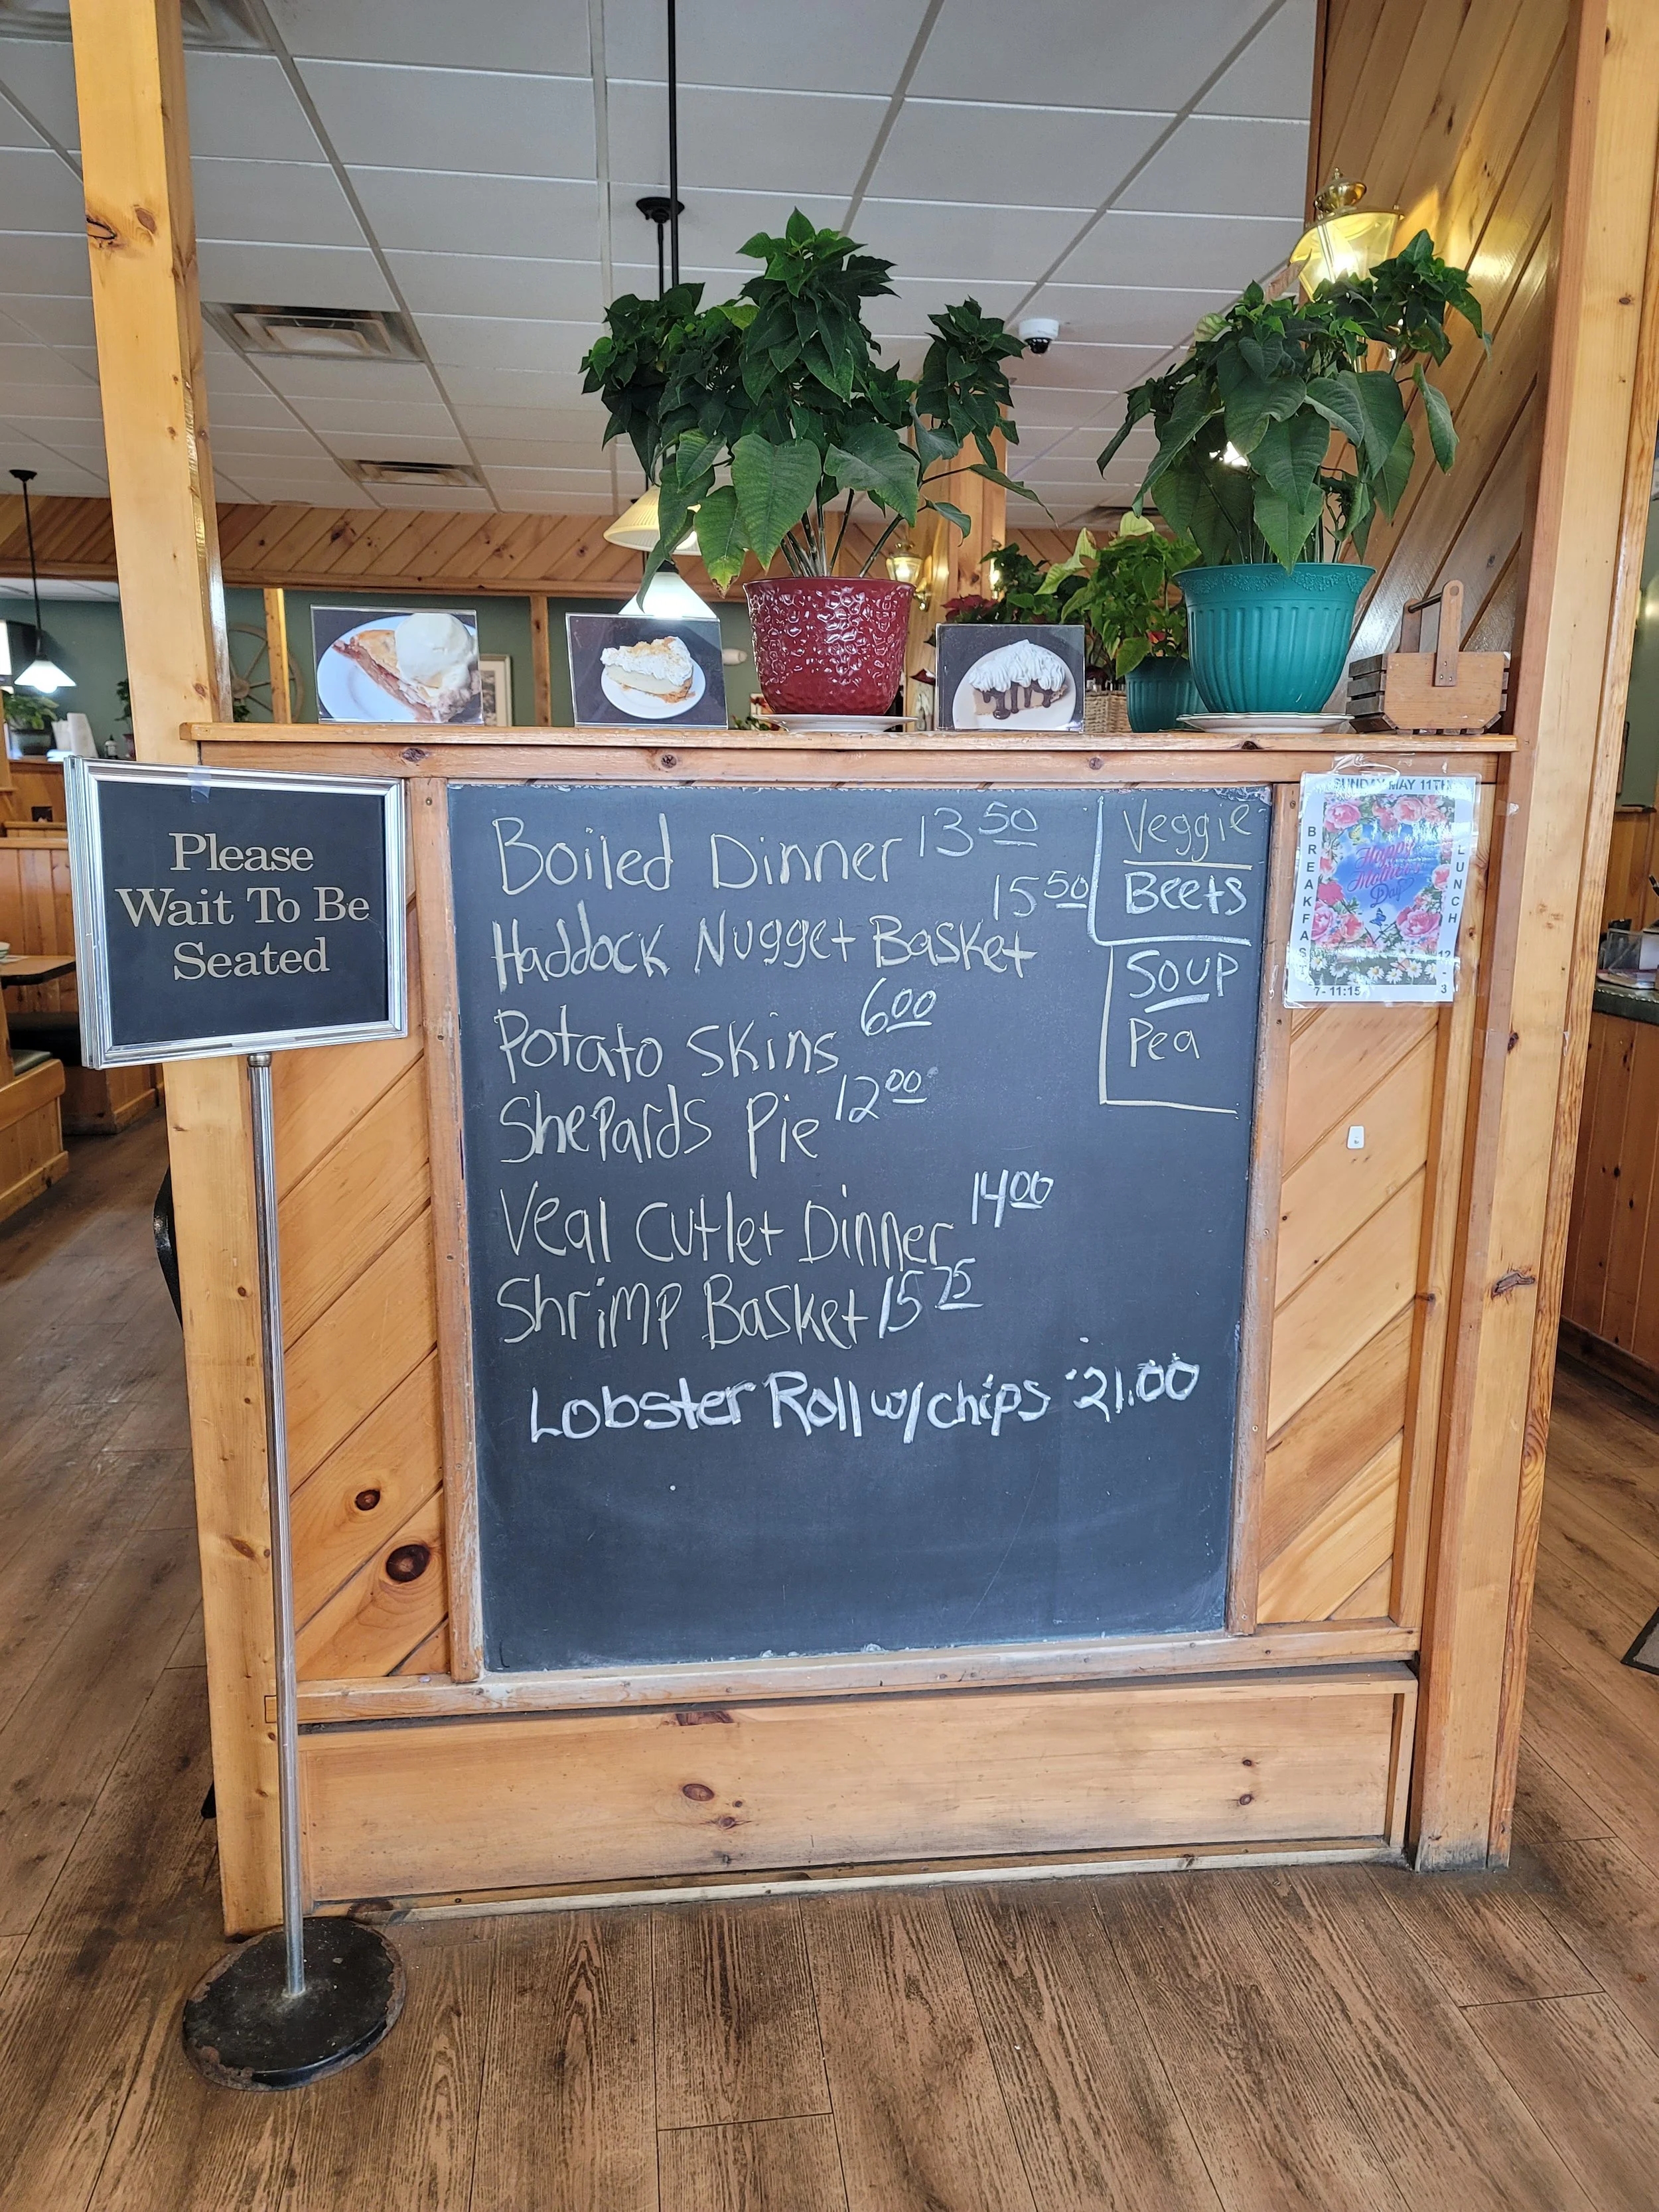 Please
Wait To Be
Seated
Boiled Dinner 13 50
Haddock Nugget Basket 15 50
Potato Skins 6 00
Shepards Pie 12 00
Veal Cutlet Dinner 14 00
Shrimp Basket 15 75
Lobster Roll w/chips 21.00
Veggie
Beets
Soup
Pea
SUNDAY MAY 11TH
BREAKFAST
7-11:15
Happy
Mother's
Day
LUNCH
12
-
3